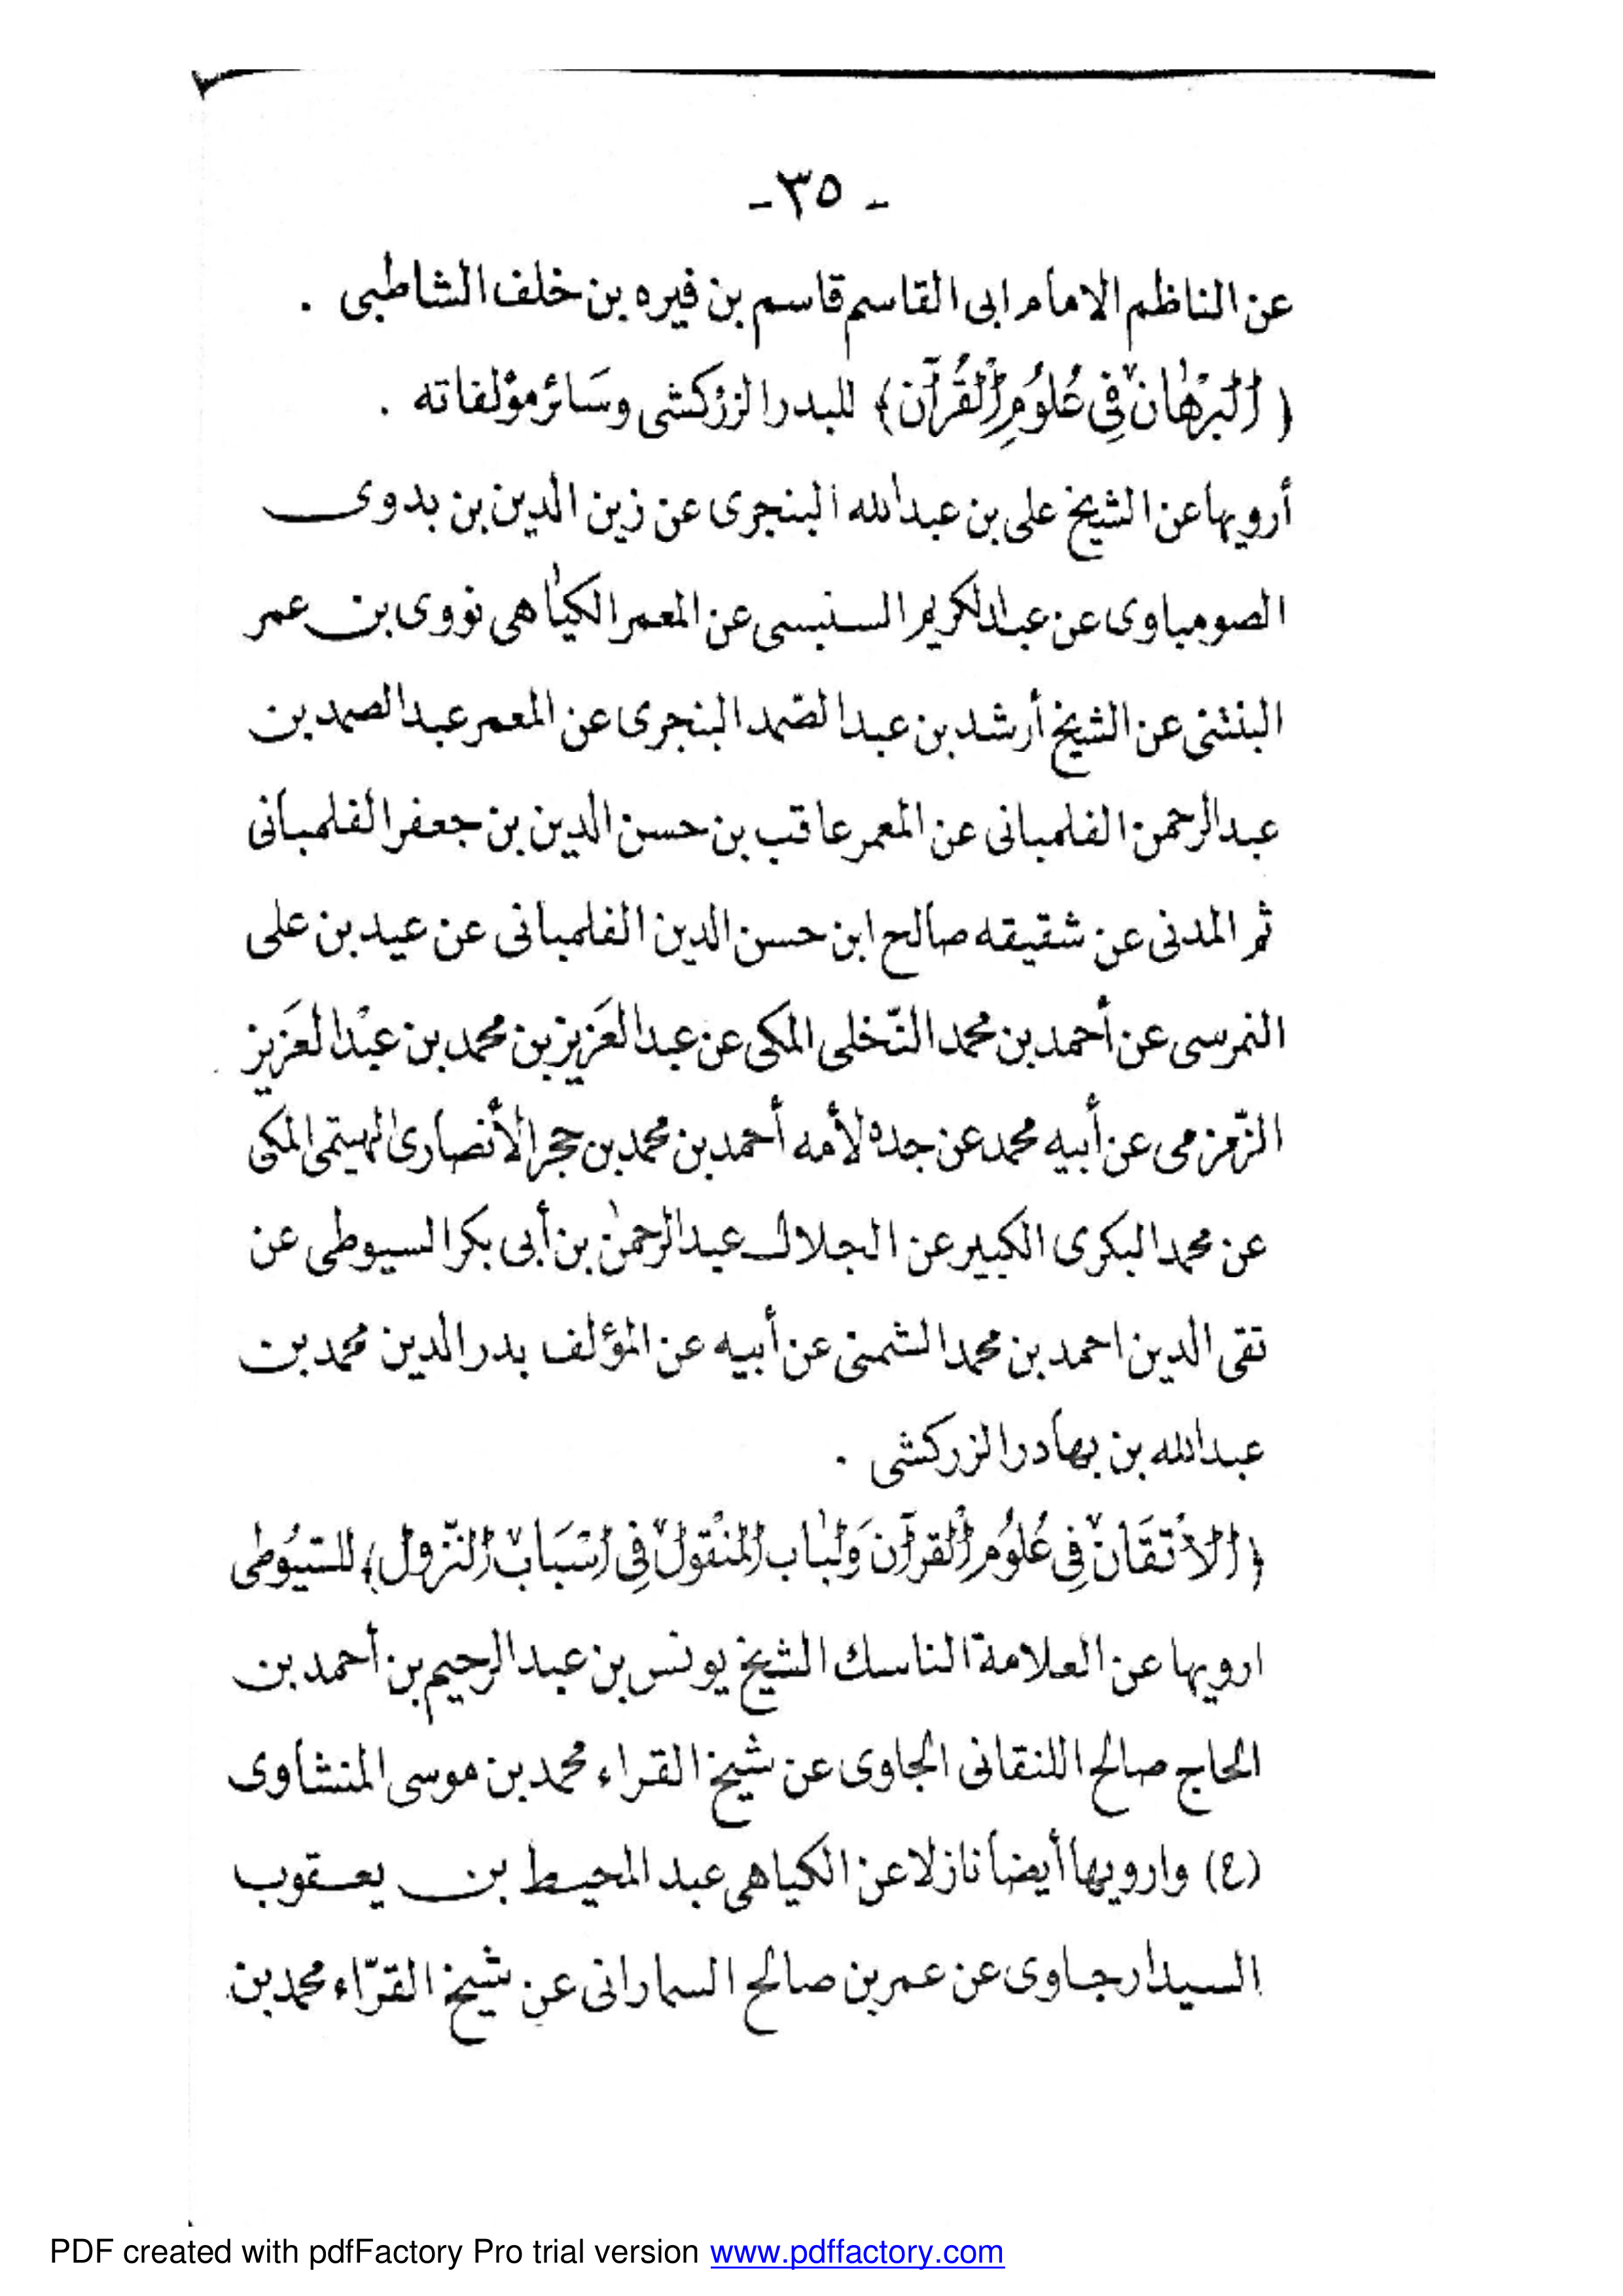 - ٣٥ -
عن الناظم الامام ابى القاسم قاسم بن فيره بن خلف الشاطبى .
﴿ اَلْبُرْهَانْ فِى عُلُوْمِ اْلقُرْآنْ ﴾ للبدر الزركشى وسَائر مؤلفاته .
أرويها عن الشيخ على بن عبدالله البنجرى عن زين الدين بن بدوى
الصومباوى عن عبدالكريم السنبسى عن المعمر الكياهى نووى بن عمر
البنتنى عن الشيخ أرشد بن عبد الصّمد البنجرى عن المعمر عبد الصمد بن
عبد الرحمن الفلمبانى عن المعمر عاقب بن حسن الدين بن جعفر الفلمبانى
ثم المدنى عن شقيقه صالح ابن حسن الدين الفلمبانى عن عيد بن على
النمرسى عن أحمد بن محمد النّخلى المكى عن عبد العَزيز بن محمد بن عبْد العَزيز
الزّمزمى عن أبيه محمد عن جده لأمه أحمد بن محمد بن حجر الأنصارى الهيتمى المكى
عن محمد البكرى الكبير عن الجلال عبد الرحمٰن بن أبى بكر السيوطى عن
تقى الدين احمد بن محمد الشمنى عن أبيه عن المؤلف بدر الدين محمد بن
عبدالله بن بهادر الزركشى .
﴿ اَلْاِتْقَانْ فِى عُلُوْمِ اْلقرآن وَلُبَاب اْلمنْقوْلْ فِى اسْبَابْ النّزول ﴾ للسّيُوْطى
ارويها عن العلامة الناسك الشيخ يونس بن عبد الرحيم بن أحمد بن
الحاج صالح اللنقانى الجاوى عن شيخ القراء محمد بن موسى المنشاوى
(ع) وارويها أيضا نازلا عن الكياهى عبد المحيط بن يعقوب
السيدارجاوى عن عمر بن صالح السمارانى عن شيخ القرّاء محمد بن
PDF created with pdfFactory Pro trial version www.pdffactory.com